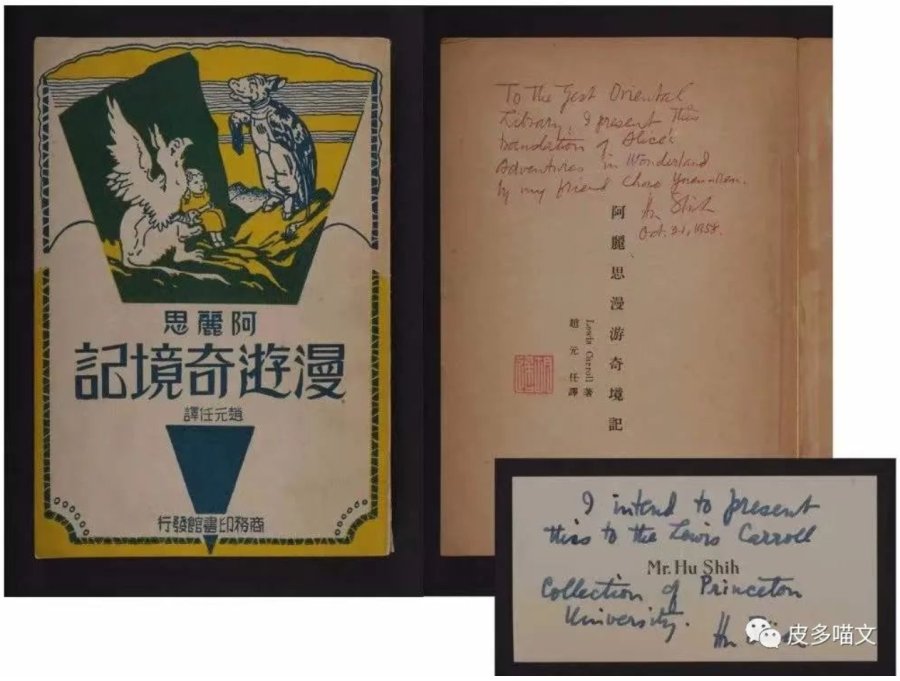 阿麗思
漫遊奇境記
趙元任譯
商務印書館發行
To the Gest Oriental
Library, I present this
translation of Alice's
Adventures in Wonderland
by my friend Chao Yuen-ren.
Hu Shih
Oct. 31, 1958.
阿麗思漫游奇境記
Lewis Carroll 著
趙元任譯
I intend to present
this to the Lewis Carroll
Mr. Hu Shih
Collection of Princeton
University.
Hu Shih
皮多喵文